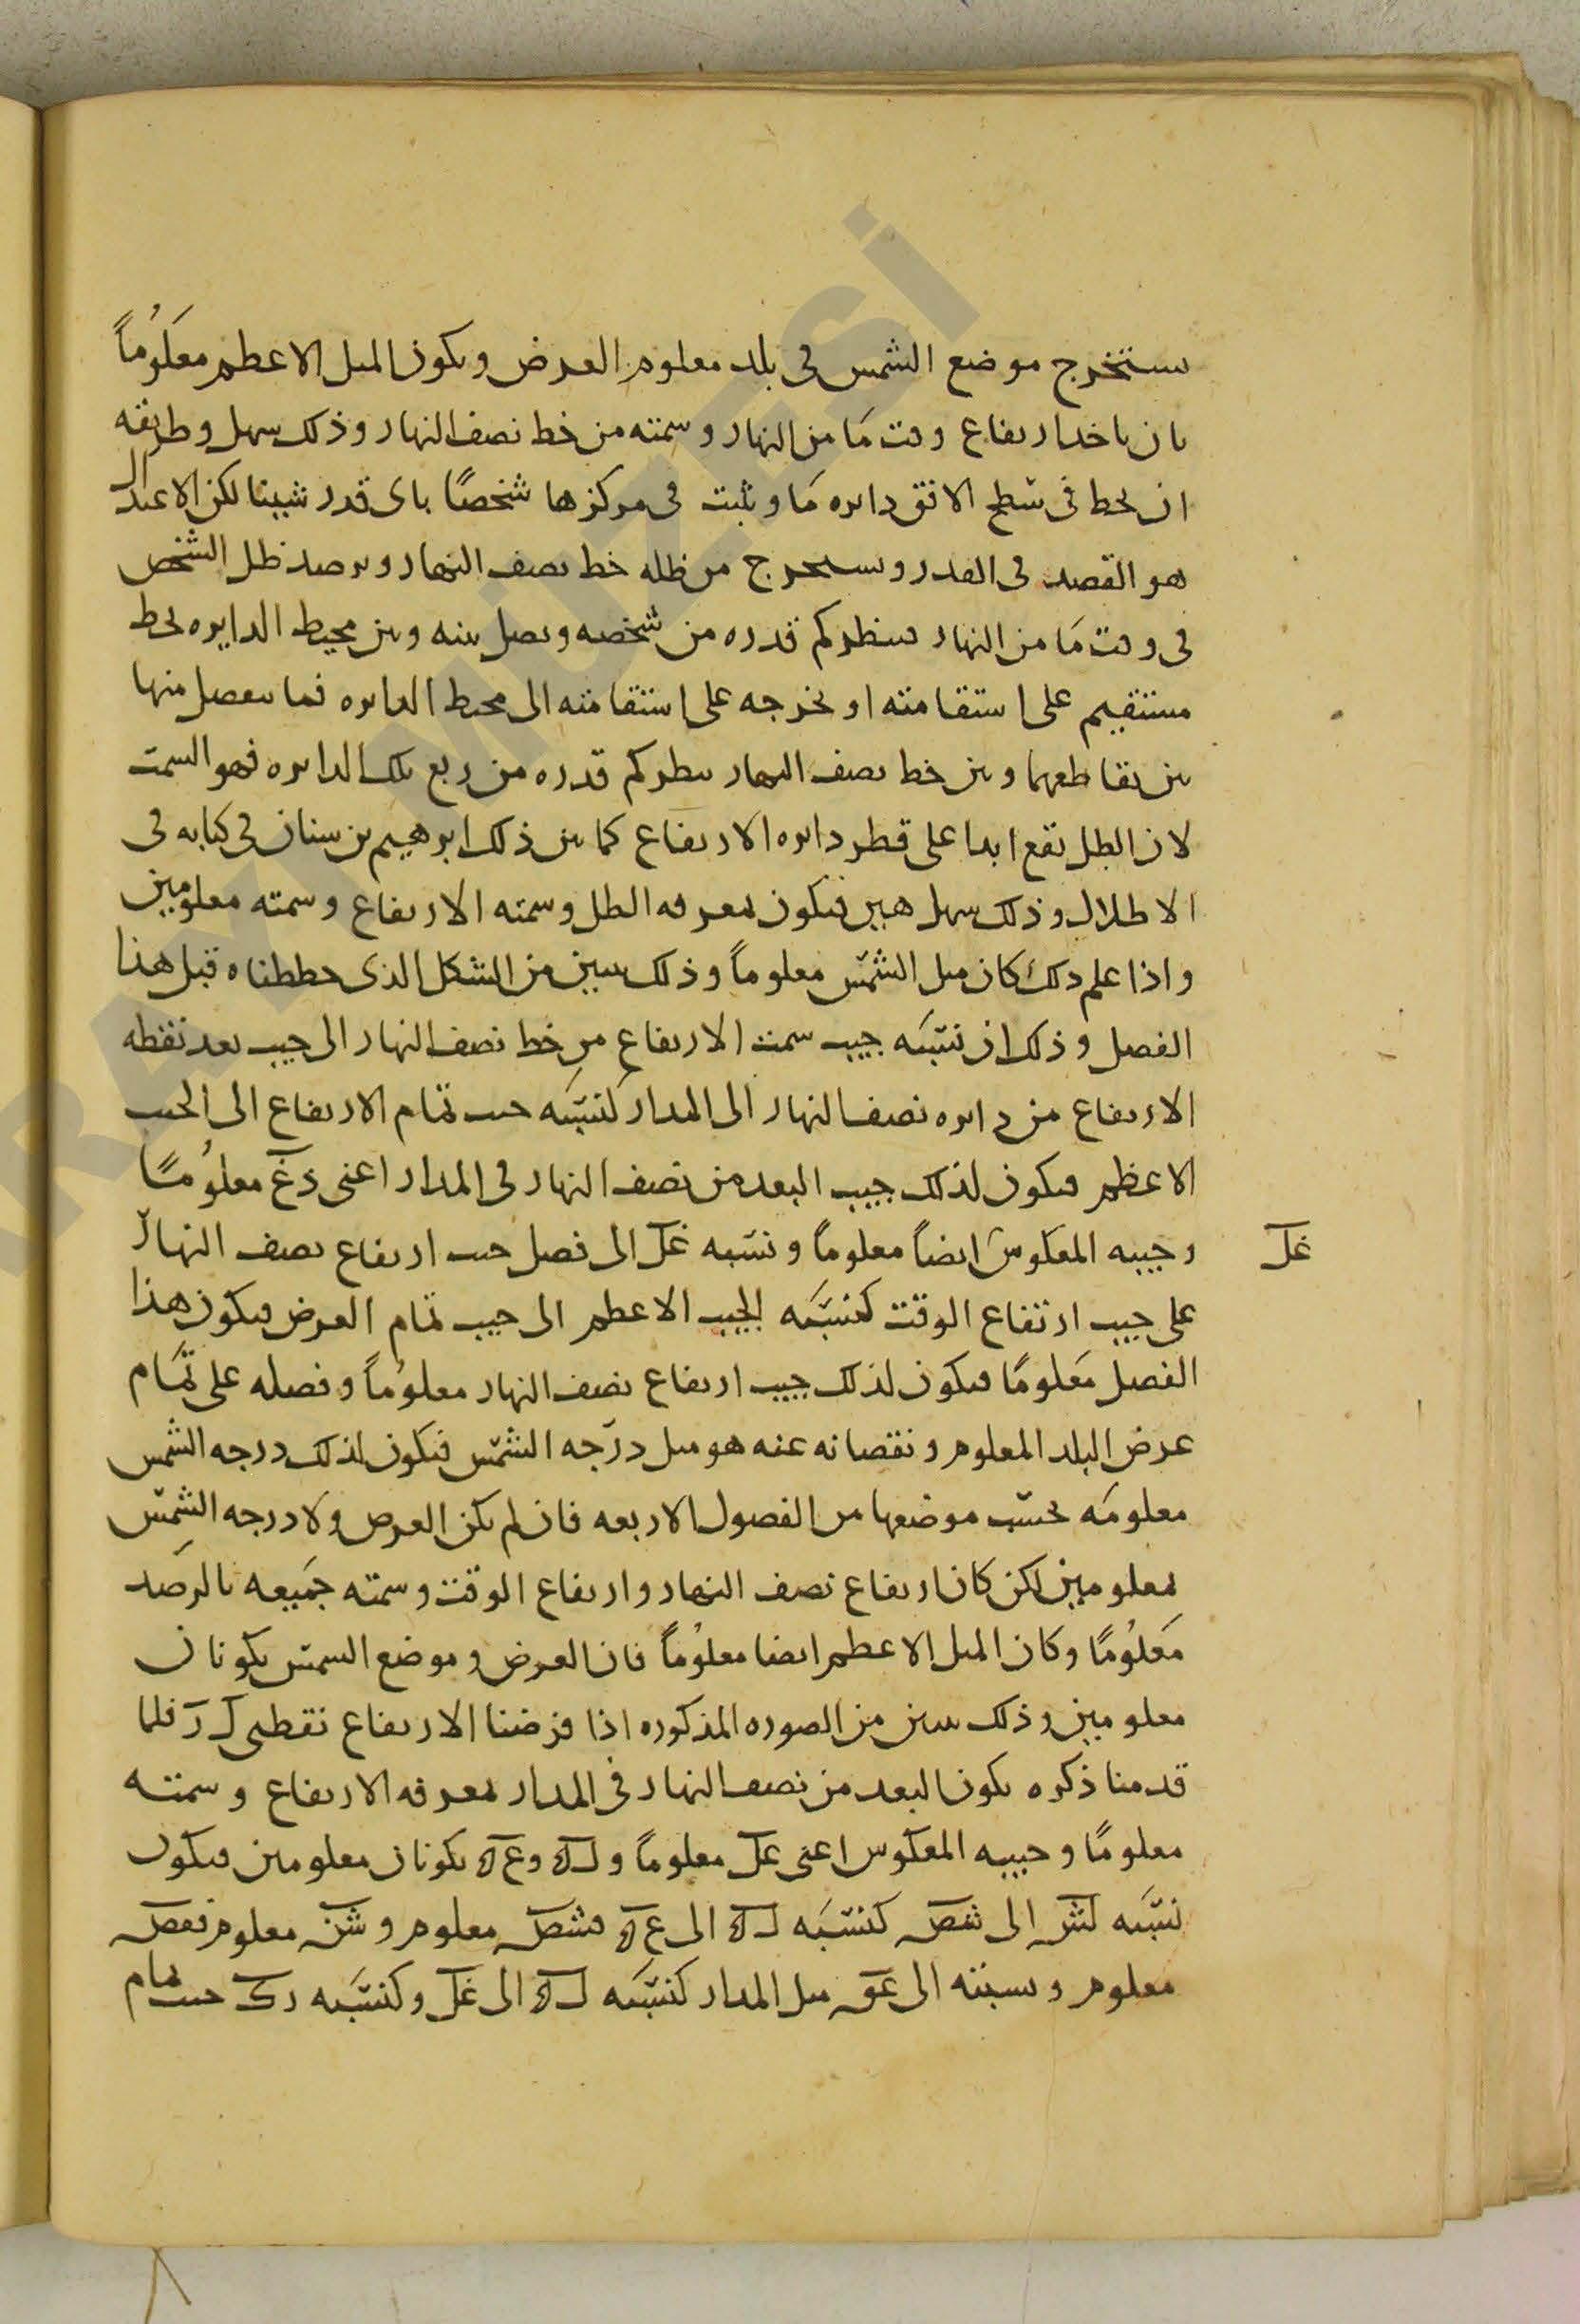 يستخرج موضع الشمس فى بلد معلوم العرض ويكون الميل الاعظم معلوماً
بان ياخذ ارتفاع وقت مَا من النهار وسمته من خط نصف النهار وذلك سهل وطريقه
ان يخط فى سطح الافق دايره مَا ويثبت فى مركزها شخصًا باى قدر شيينا لكن الاعتدال
هو القصد فى القدر ويستخرج من ظله خط نصف النهار ويرصد ظل الشخص
فى وقت مَا من النهار فينظر كم قدره من شخصه ويصل بينه وبين محيط الدايره بخط
مستقيم على استقامته او نخرجه على استقامته الى محيط الدايره فما ينفصل منها
بين تقاطعهما وبين خط نصف النهار ينظر كم قدره من ربع تلك الدايره فهو السمت
لان الظل يقع ابدا على قطر دايره الارتفاع كما بين ذلك ابرهيم بن سنان فى كتابه فى
الاظلال وذلك سهل هين فيكون بمعرفه الظل وسمته الارتفاع وسمته معلومين
واذا علم ذلك كان ميل الشمس معلوماً وذلك يتبين من الشكل الذى خططناه قبل هذا
الفصل وذلك ان نسبَه جيب سمت الارتفاع من خط نصف النهار الى جيب بعد نقطه
الارتفاع من دايره نصف النهار الى المدار كنسبَه جيب تمام الارتفاع الى الجيب
الاعظم فيكون لذلك جيب البعد من نصف النهار فى المدار اعنى دغ معلومًا
وجيبه المعكوس ايضاً معلوماً ونسبه غل الى فصل جيب ارتفاع نصف النهار
غل
على جيب ارتفاع الوقت كنسبَه الجيب الاعظم الى جيب تمام العرض فيكون هذا
الفصل مَعلومًا فيكون لذلك جيب ارتفاع نصف النهار معلوماً وفصله على تمَام
عرض البلد المعلوم ونقصانه عنه هو ميل درَجه الشمس فيكون لذلك درجه الشمس
معلومَه بحسب موضعها من الفصول الاربعه فان لم يكن العرض ولا درجه الشمس
معلومين لكن كان ارتفاع نصف النهار وارتفاع الوقت وسمته جميعه بالرصَد
مَعلُومًا وكان الميل الاعظم ايضا معلوماً فان العرض وموضع الشمس يكونان
معلومين وذلك يتبين من الصوره المذكوره اذا فرضنا الارتفاع نقطتى ل ر فلما
قدمنا ذكره يكون البعد من نصف النهار فى المدار بمعرفه الارتفاع وسمته
معلومًا وجيبه المعكوس اعنى غل معلوماً و له وع ه يكونان معلومين فيكون
نسبَه لش الى شص كنسبَه له الى ع ه فشص معلوم وشن معلوم فنعص
معلوم ونسبته الى عق ميل المدار كنسبَه له الى غل وكنسبَه رك جيب تمام